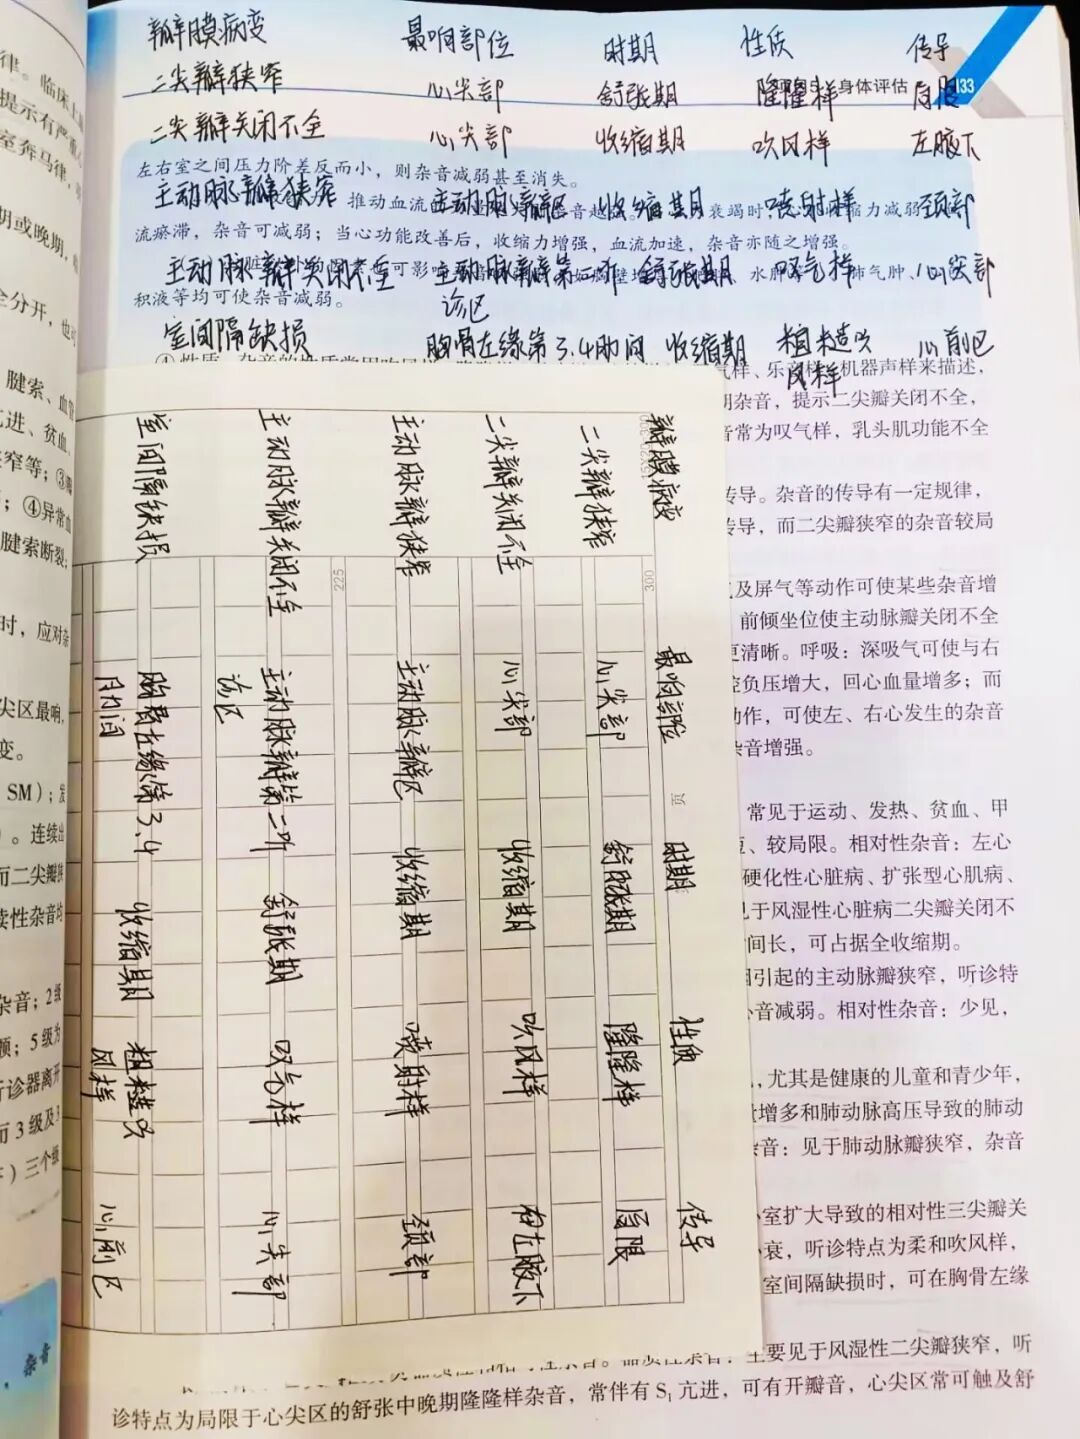 瓣膜病变 最响部位 时期 性质 传导
二尖瓣狭窄 心尖部 舒张期 隆隆样 局限
身体评估 133
二尖瓣关闭不全 心尖部 收缩期 吹风样 左腋下
左右室之间压力阶差反而小，则杂音减弱甚至消失。
主动脉瓣狭窄 主动脉瓣区 收缩期 喷射样 颈部
推动血流 杂音越 衰竭时， 缩力减弱
流瘀滞，杂音可减弱；当心功能改善后，收缩力增强，血流加速，杂音亦随之增强。
主动脉瓣关闭不全 主动脉瓣第二听 舒张期 叹气样 心尖部
可影 水肿 肺气肿、
诊区
积液等均可使杂音减弱。
室间隔缺损 胸骨左缘第3.4肋间 收缩期 粗糙吹 心前区
风样
气样、乐音样、机器声样来描述，
期杂音，提示二尖瓣关闭不全，
音常为叹气样，乳头肌功能不全
传导。杂音的传导有一定规律，
传导，而二尖瓣狭窄的杂音较局
及屏气等动作可使某些杂音增
前倾坐位使主动脉瓣关闭不全
更清晰。呼吸：深吸气可使与右
腔负压增大，回心血量增多；而
动作，可使左、右心发生的杂音
杂音增强。
常见于运动、发热、贫血、甲
、较局限。相对性杂音：左心
硬化性心脏病、扩张型心肌病、
见于风湿性心脏病二尖瓣关闭不
间长，可占据全收缩期。
因引起的主动脉瓣狭窄，听诊特
音减弱。相对性杂音：少见，
，尤其是健康的儿童和青少年，
增多和肺动脉高压导致的肺动
杂音：见于肺动脉瓣狭窄，杂音
室扩大导致的相对性三尖瓣关
衰，听诊特点为柔和吹风样，
室间隔缺损时，可在胸骨左缘
主要见于风湿性二尖瓣狭窄，听
诊特点为局限于心尖区的舒张中晚期隆隆样杂音，常伴有S₁亢进，可有开瓣音，心尖区常可触及舒
瓣膜病变 最响部位 时期 性质 传导
300 页
二尖瓣狭窄 心尖部 舒张期 隆隆样 局限
二尖瓣关闭不全 心尖部 收缩期 吹风样 向左腋下
主动脉瓣狭窄 主动脉瓣区 收缩期 喷射样 颈部
225
主动脉瓣关闭不全 主动脉瓣第二听 舒张期 叹气样 心尖部
诊区
室间隔缺损 胸骨左缘第3.4 收缩期 粗糙吹 心前区
肋间 风样
律。临床上
提示有严重
室奔马律，
期或晚期，
全分开，也可
腱索、血管
亢进、贫血、
窄等；③
；④异常血
腱索断裂；
时，应对杂
尖区最响，
变。
SM）；发
）。连续出
而二尖瓣狭
续性杂音均
杂音；2级
；5级为
听诊器离开
而3级及3
）三个级
杂音